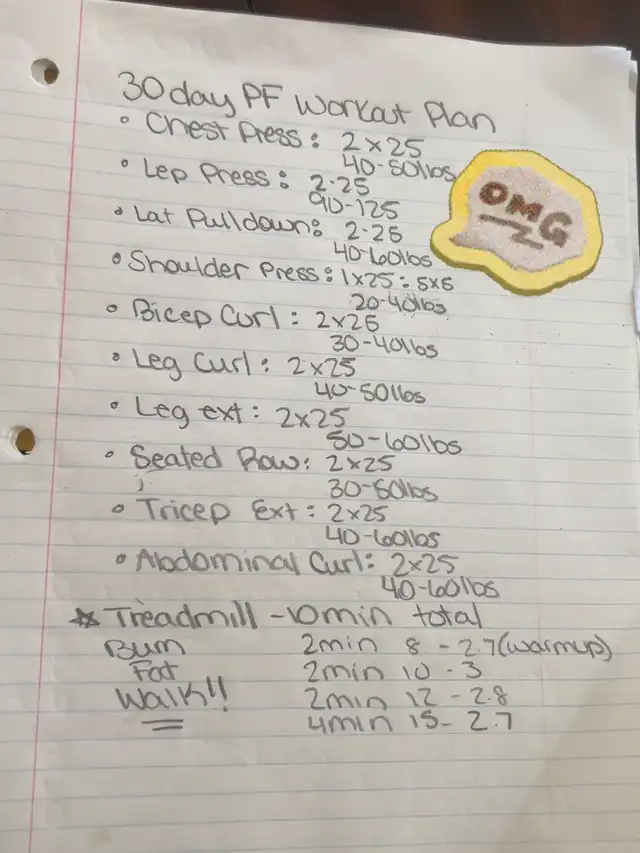 30 day PF Workout Plan
• Chest Press: 2x25
40-50lbs
• Lep Press: 2-25
90-125
• Lat Pulldown: 2-25
40-60lbs
• Shoulder Press: 1x25: 5x5
20-40lbs
• Bicep Curl: 2x25
30-40lbs
• Leg Curl: 2x25
40-50lbs
• Leg ext: 2x25
50-60lbs
• Seated Row: 2x25
30-50lbs
• Tricep Ext: 2x25
40-60lbs
• Abdominal Curl: 2x25
40-60lbs
☆ Treadmill -10min total
Burn 2min 8 - 2.7(warmup)
Fat 2min 10 - 3
Walk!! 2min 12 - 2.8
4min 15- 2.7
OMG